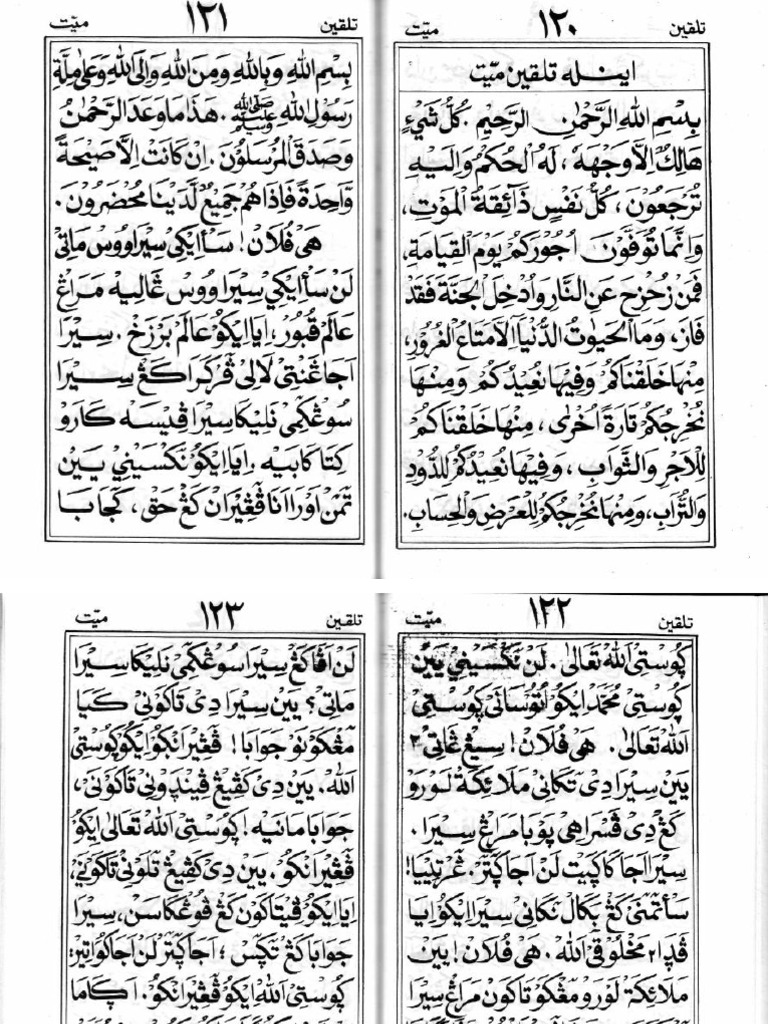 تلقين ١٢٠ ميّت
اينله تلقين ميّت
بِسْمِ اللهِ الرَّحْمٰنِ الرَّحِيْمِ. كُلُّ شَيْءٍ
هَالِكٌ اِلاَّ وَجْهَهُ، لَهُ الْحُكْمُ وَاِلَيْهِ
تُرْجَعُوْنَ، كُلُّ نَفْسٍ ذَآئِقَةُ الْمَوْتِ،
وَاِنَّمَا تُوَفَّوْنَ اُجُوْرَكُمْ يَوْمَ الْقِيَامَةِ،
فَمَنْ زُحْزِحَ عَنِ النَّارِ وَاُدْخِلَ الْجَنَّةَ فَقَدْ
فَازَ، وَمَا الْحَيٰوتُ الدُّنْيَآ اِلاَّ مَتَاعُ الْغُرُوْرِ،
مِنْهَا خَلَقْنَاكُمْ وَفِيْهَا نُعِيْدُكُمْ وَمِنْهَا
نُخْرِجُكُمْ تَارَةً اُخْرٰى، مِنْهَا خَلَقْنَاكُمْ
لِلْاَجْرِ وَالثَّوَابِ، وَفِيْهَا نُعِيْدُكُمْ لِلدُّوْدِ
وَالتُّرَابِ، وَمِنْهَا نُخْرِجُكُمْ لِلْعَرْضِ وَالْحِسَابِ.
تلقين ١٢١ ميّت
بِسْمِ اللهِ وَبِاللهِ وَمِنَ اللهِ وَاِلَى اللهِ وَعَلَى مِلَّةِ
رَسُوْلِ اللهِ ﷺ. هٰذَا مَا وَعَدَ الرَّحْمٰنُ
وَصَدَقَ الْمُرْسَلُوْنَ. اِنْ كَانَتْ اِلاَّ صَيْحَةً
وَّاحِدَةً فَاِذَا هُمْ جَمِيْعٌ لَّدَيْنَا مُحْضَرُوْنَ.
هَيْ فُلَانْ! سَأاِيْكِي سِيْرَا وُوْسْ مَاتِيْ
لَنْ سَأاِيْكِي سِيْرَا وُوْسْ ڠَالِيْهْ مَرَاغْ
عَالَمْ قُبُوْر، اِيَا اِيْكُوْ عَالَمْ بَرْزَخْ. سِيْرَا
اَجَا ڠَنْتِيْ لَالِيْ ڤَرْكَرَا كَڠْ سِيْرَا
سُوْڠْكِمِيْ نَلِيْكَا سِيْرَا ڤِيْسَهْ كَارَوْ
كِتَا كَابَيْهْ. اِيَا اِيْكُوْ نَكْسَيْنِيْ يَيْنْ
تَمَنْ اَوْرَا اَنَا ڤَڠَيْرَانْ كَڠْ حَقْ، كَجَابَا
تلقين ١٢٢ ميّت
ڮُوْسْتِيْ اللهْ تَعَالٰى. لَنْ نَكْسَيْنِيْ يَيْنْ
ڮُوْسْتِيْ مُحَمَّدْ اِيْكُوْ اُتُوْسَانَيْ ڮُوْسْتِيْ
اللهْ تَعَالٰى. هَيْ فُلَانْ! سِيْڠْ ڠَاتِيْ٢
يَيْنْ سِيْرَا دِيْ تَكَانِيْ مَلَائِكَةْ لَوْرَوْ
كَڠْ دِيْ ڤَسْرَاهِيْ ڤَوْبَا مَرَاغْ سِيْرَا.
سِيْرَا اَجَا كَاڮَيْتْ لَنْ اَجَا ڮَتَرْ. ڠَرْتِيْيَا!
سَأتَمَنَيْ كَڠْ بَكَالْ نَكَانِيْ سِيْرَا اِيْكُوْ اِيَا
ڤَدَا٢ مَخْلُوْقَيْ اللهْ. هَيْ فُلَانْ! يَيْنْ
مَلَائِكَةْ لَوْرَوْ مَڠْكَوْ تَاكَوْنْ مَرَاغْ سِيْرَا
تلقين ١٢٣ ميّت
لَنْ اَڤَا كَڠْ سِيْرَا سُوْڠْكَمِيْ نَلِيْكَا سِيْرَا
مَاتِيْ؟ يَيْنْ سِيْرَا دِيْ تَاكَوْنِيْ كَيَا
مَڠْكَوْنَوْ جَوَابَا! ڤَڠَيْرَانْكُوْ اِيْكُوْ ڮُوْسْتِيْ
اللهْ. يَيْنْ دِيْ كَڤِيْڠْ ڤِيْنْدَوْنِيْ تَاكَوْنِيْ،
جَوَابَا مَانَيْهْ! ڮُوْسْتِيْ اللهْ تَعَالٰى اِيْكُوْ
ڤَڠَيْرَانْكُوْ. يَيْنْ دِيْ كَڤِيْڠْ تَلَوْنِيْ تَاكَوْنِيْ،
اِيَا اِيْكُوْ ڤِيْتَاكَوْنْ كَڠْ ڤُوْڠْكَاسَنْ، سِيْرَا
جَوَابَا كَڠْ تَڮَسْ؛ اَجَا ڮَتَرْ لَنْ اَجَا كُوَاتِيْر:
ڮُوْسْتِيْ اللهْ اِيْكُوْ ڤَڠَيْرَانْكُوْ. اَڮَامَا